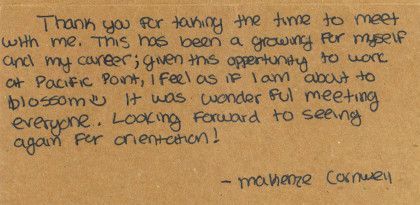 Thank you for taking the time to meet
with me. This has been a growing for myself
and my career; given this opportunity to work
at Pacific Point, I feel as if I am about to
blossom☺ It was wonderful meeting
everyone. Looking forward to seeing
again for orientation!
- Makenze Cornwell